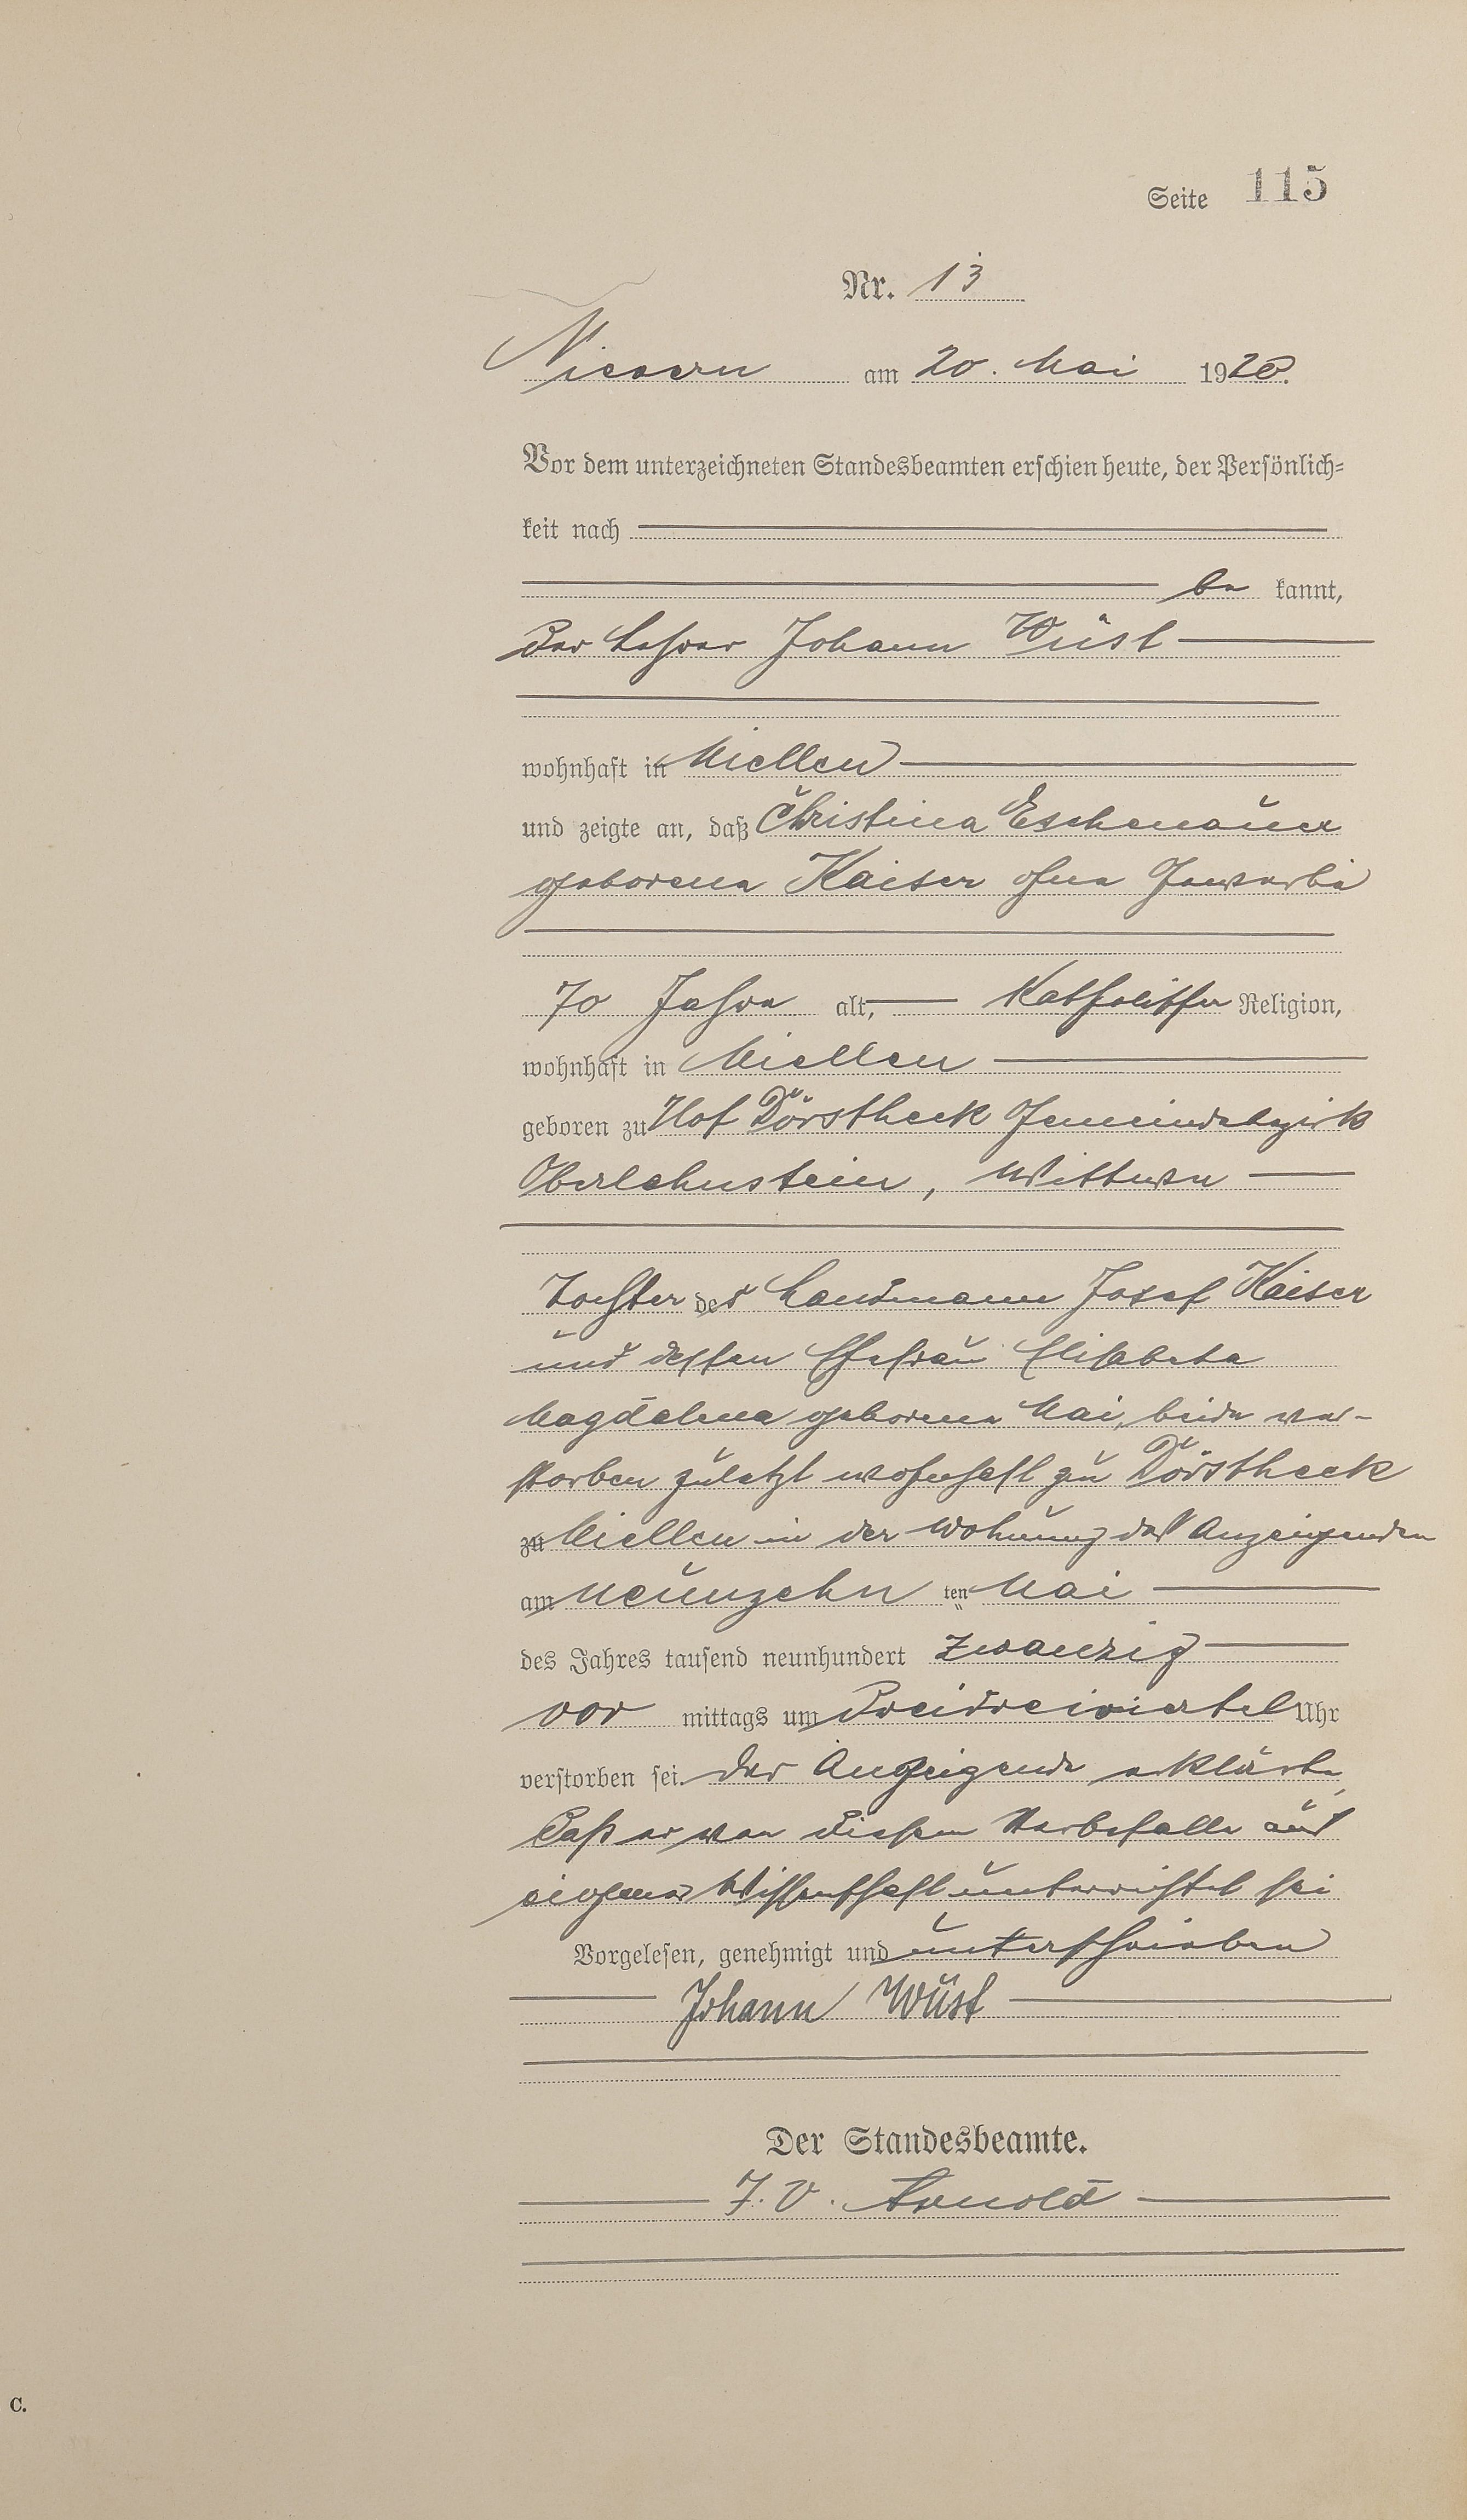 Seite 115
Nr. 13
Nievern am 20. Mai 1920.
Vor dem unterzeichneten Standesbeamten erschien heute, der Persönlich=
keit nach
be kannt,
der Lehrer Johann Wüst
wohnhaft in Miellen
und zeigte an, daß Christina Eschenauer
geborene Kaiser ohne Gewerbe
70 Jahre alt, Katholischer Religion,
wohnhaft in Miellen
geboren zu Hof Dörstheck Gemeindebezirk
Oberlahnstein, Wittwe
Tochter des Landmann Josef Kaiser
und dessen Ehefrau Elisabeta
Magdalena geborene Mai, beide ver-
storben zuletzt wohnhaft zu Dörstheck
zu Miellen in der Wohnung des Anzeigenden
am neunzehn ten Mai
des Jahres tausend neunhundert zwanzig
vor mittags um dreidreiviertel Uhr
verstorben sei. Der Anzeigende erklärte,
daß er von diesem Sterbefalle aus
eigener Wissenschaft unterrichtet sei
Vorgelesen, genehmigt und unterschrieben
Johann Wüst
Der Standesbeamte.
J. V. Arnold
C.